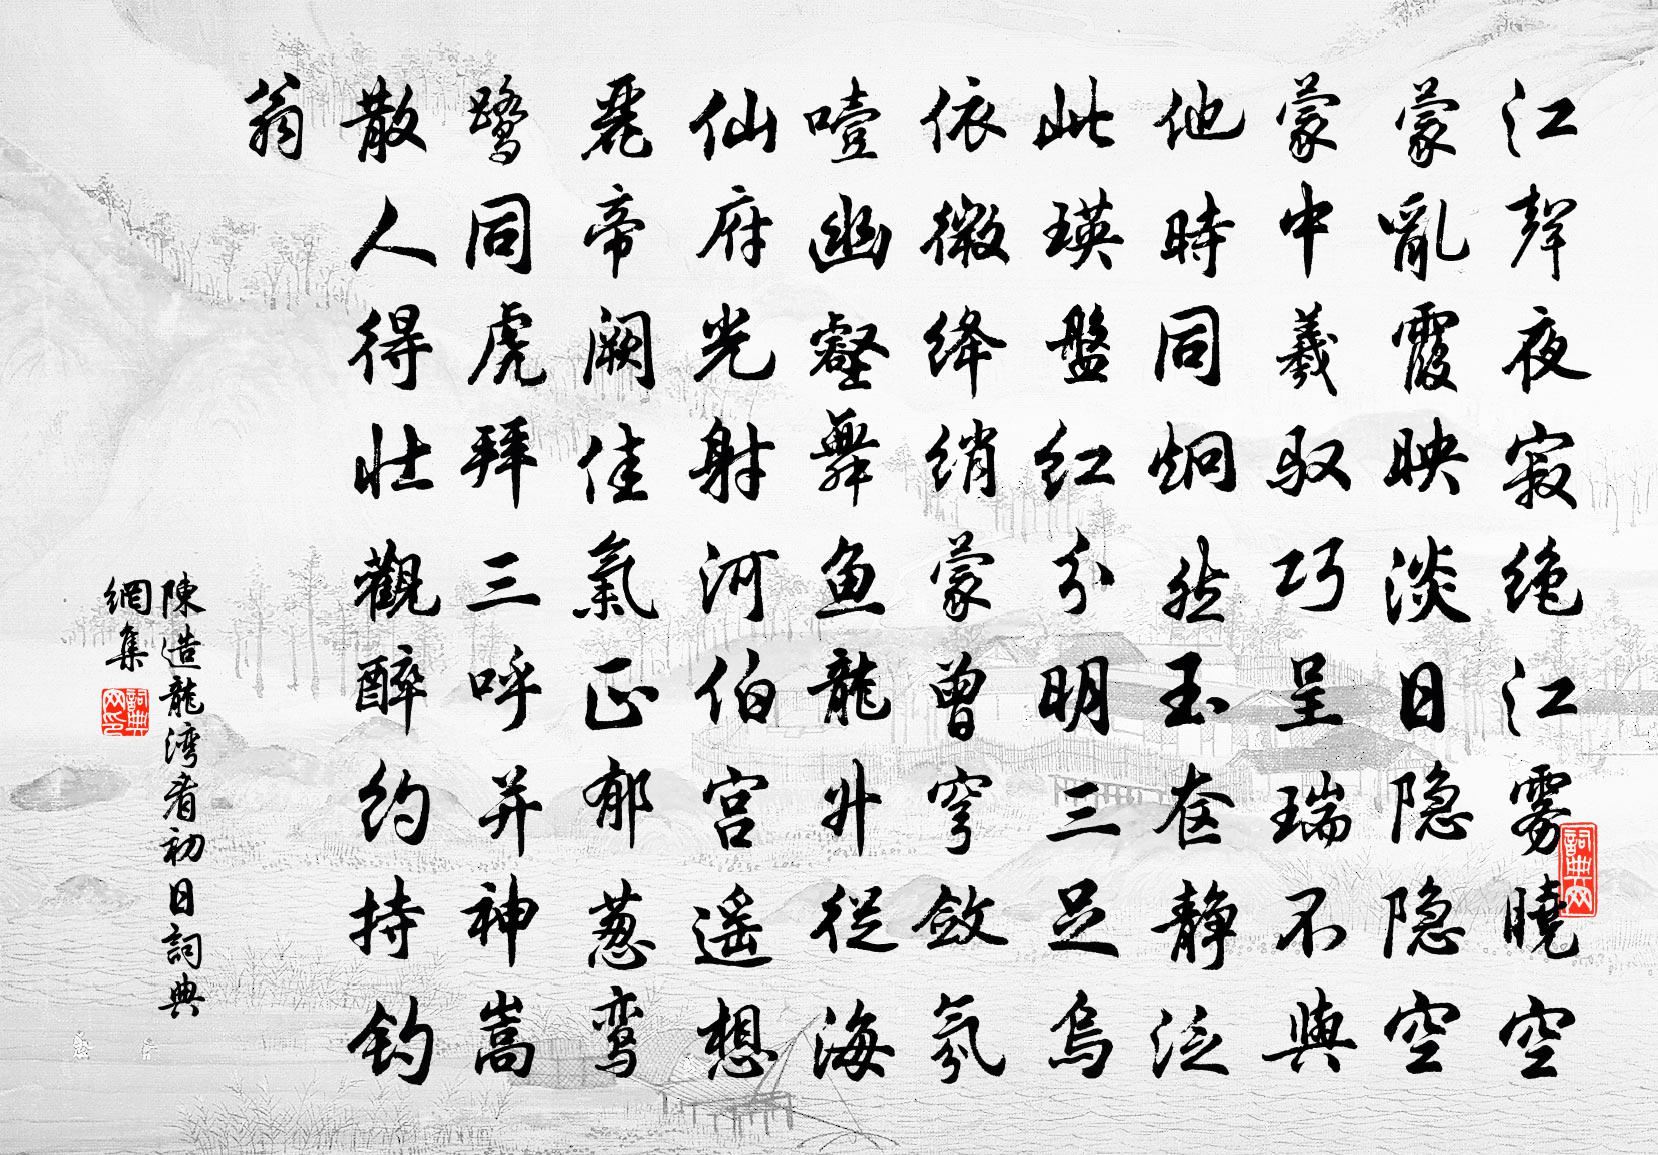 江聲夜寂绝江雾曉空
蒙亂霞映淡日隐隐空
蒙中羲驭巧呈瑞不與
他時同炯然玉奁静泛
此瑛盤红分明三足烏
依微绛绡蒙曾穹斂氛
噎幽壑舞鱼龍升從海
仙府光射河伯宫遥想
麗帝阙佳氣正郁葱鸾
鹭同虎拜三呼并神嵩
散人得壮觀醉约持钓
翁
陳造龍湾看初日詞典
網集
詞典网
詞典网印